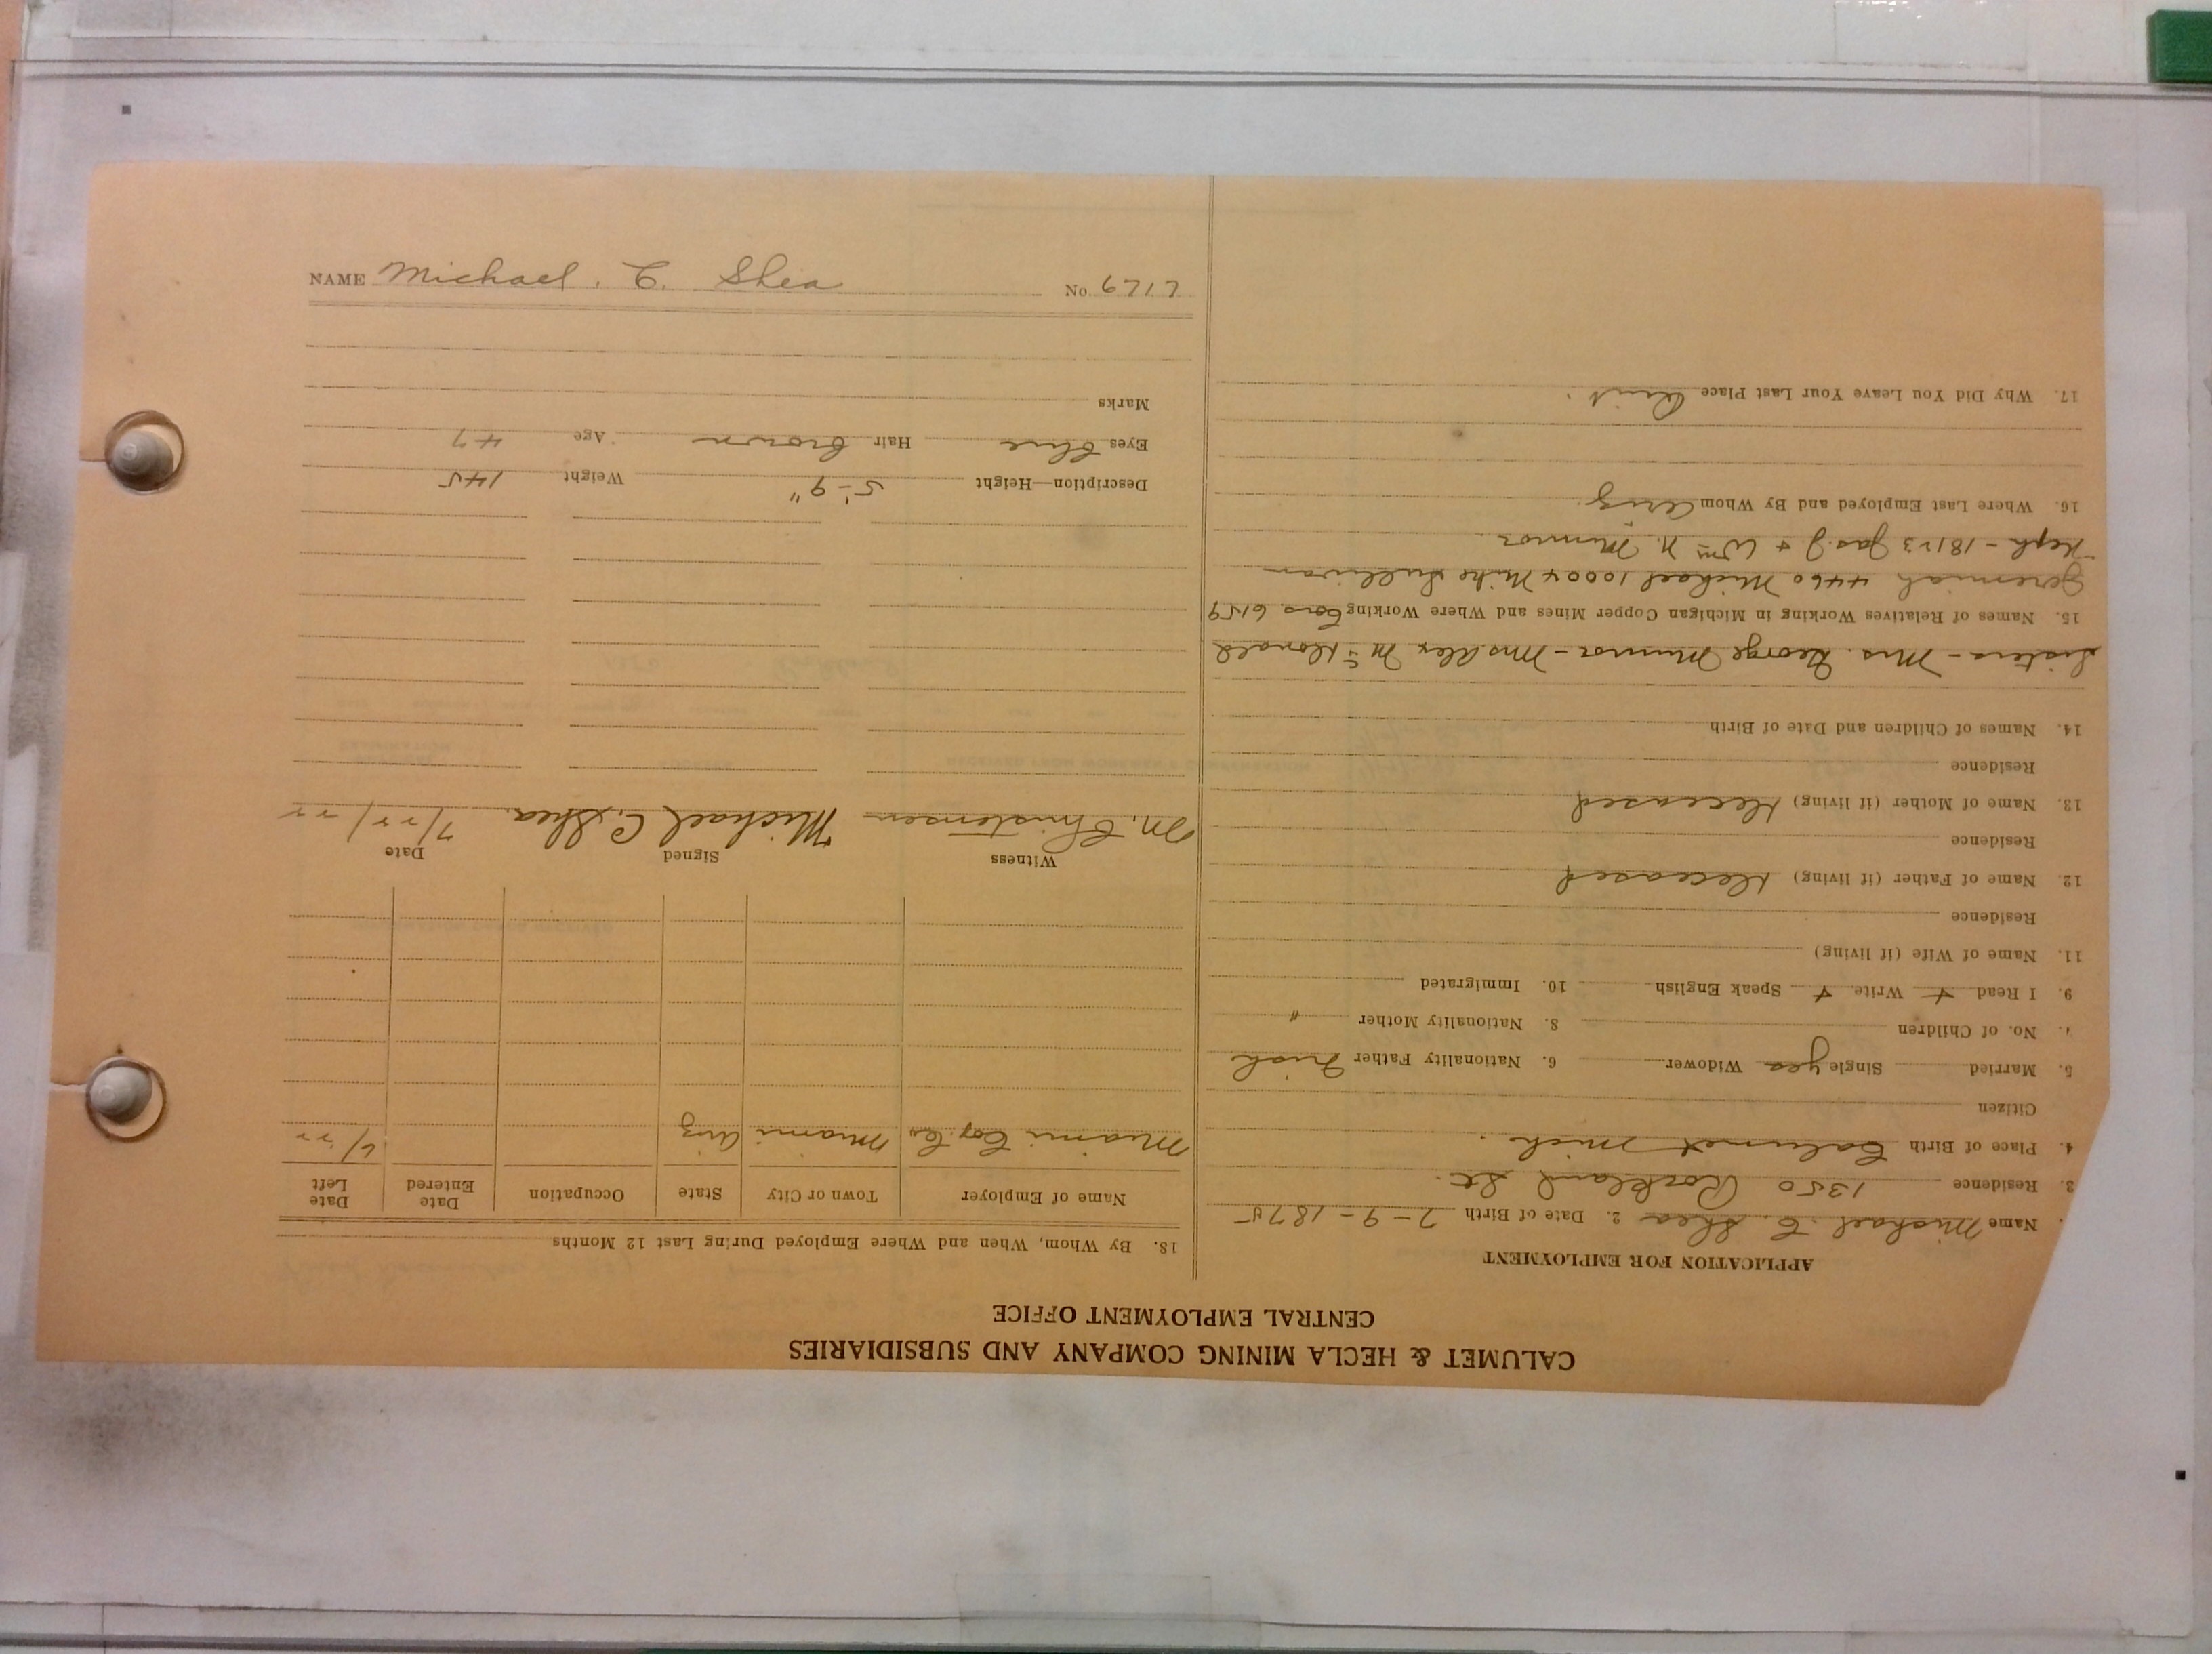 CALUMET & HECLA MINING COMPANY AND SUBSIDIARIES
CENTRAL EMPLOYMENT OFFICE
APPLICATION FOR EMPLOYMENT
Name Michael C. Shea 2. Date of Birth 7-9-1875
3. Residence 1350 Rockland St.
4. Place of Birth Calumet Mich.
Citizen
5. Married Single yes Widower 6. Nationality Father Irish
7. No. of Children 8. Nationality Mother "
9. I Read + Write + Speak English 10. Immigrated
11. Name of Wife (if living)
Residence
12. Name of Father (if living) Deceased
Residence
13. Name of Mother (if living) Deceased
Residence
14. Names of Children and Date of Birth
Sisters - Mrs. George Munror - Mrs Alex McDonald
15. Names of Relatives Working in Michigan Copper Mines and Where Working Cors 6159
Jeremiah 4460 Michael 10004 Mike Sullivan
Neph - 18123 Jas. J + Wm N. Munror
16. Where Last Employed and By Whom Ariz.
17. Why Did You Leave Your Last Place Quit.
18. By Whom, When and Where Employed During Last 12 Months
Name of Employer Town or City State Occupation Date Entered Date Left
Miami Cop. Co. Miami Ariz 6/22
Witness Signed Date
M. Christensen Michael C. Shea. 7/22/22
Description—Height 5'-9" Weight 145
Eyes blue Hair brown Age 47
Marks
NAME Michael. C. Shea No. 6717